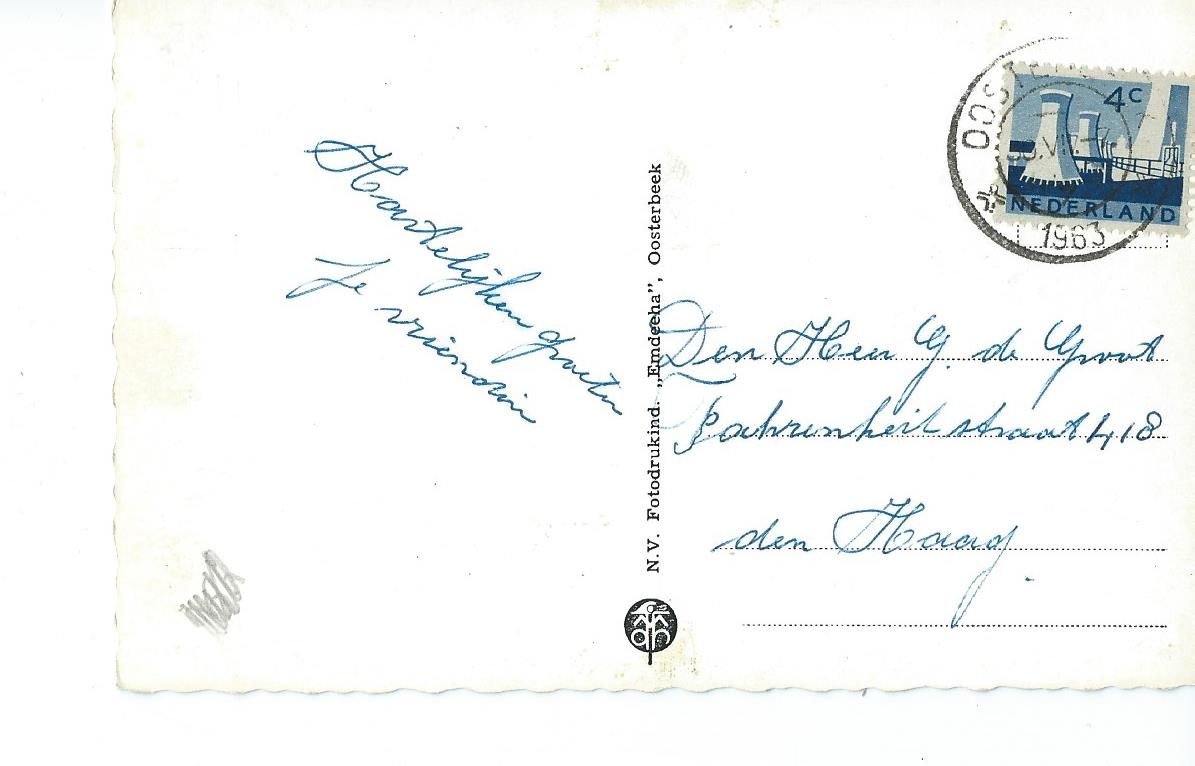 Hartelijken groeten
Je vriendin
N.V. Fotodrukind. „Emdeeha”, Oosterbeek
4c
NEDERLAND
1963
Den Heer G. de Groot
Fahrenheit straat 418
den Haag.